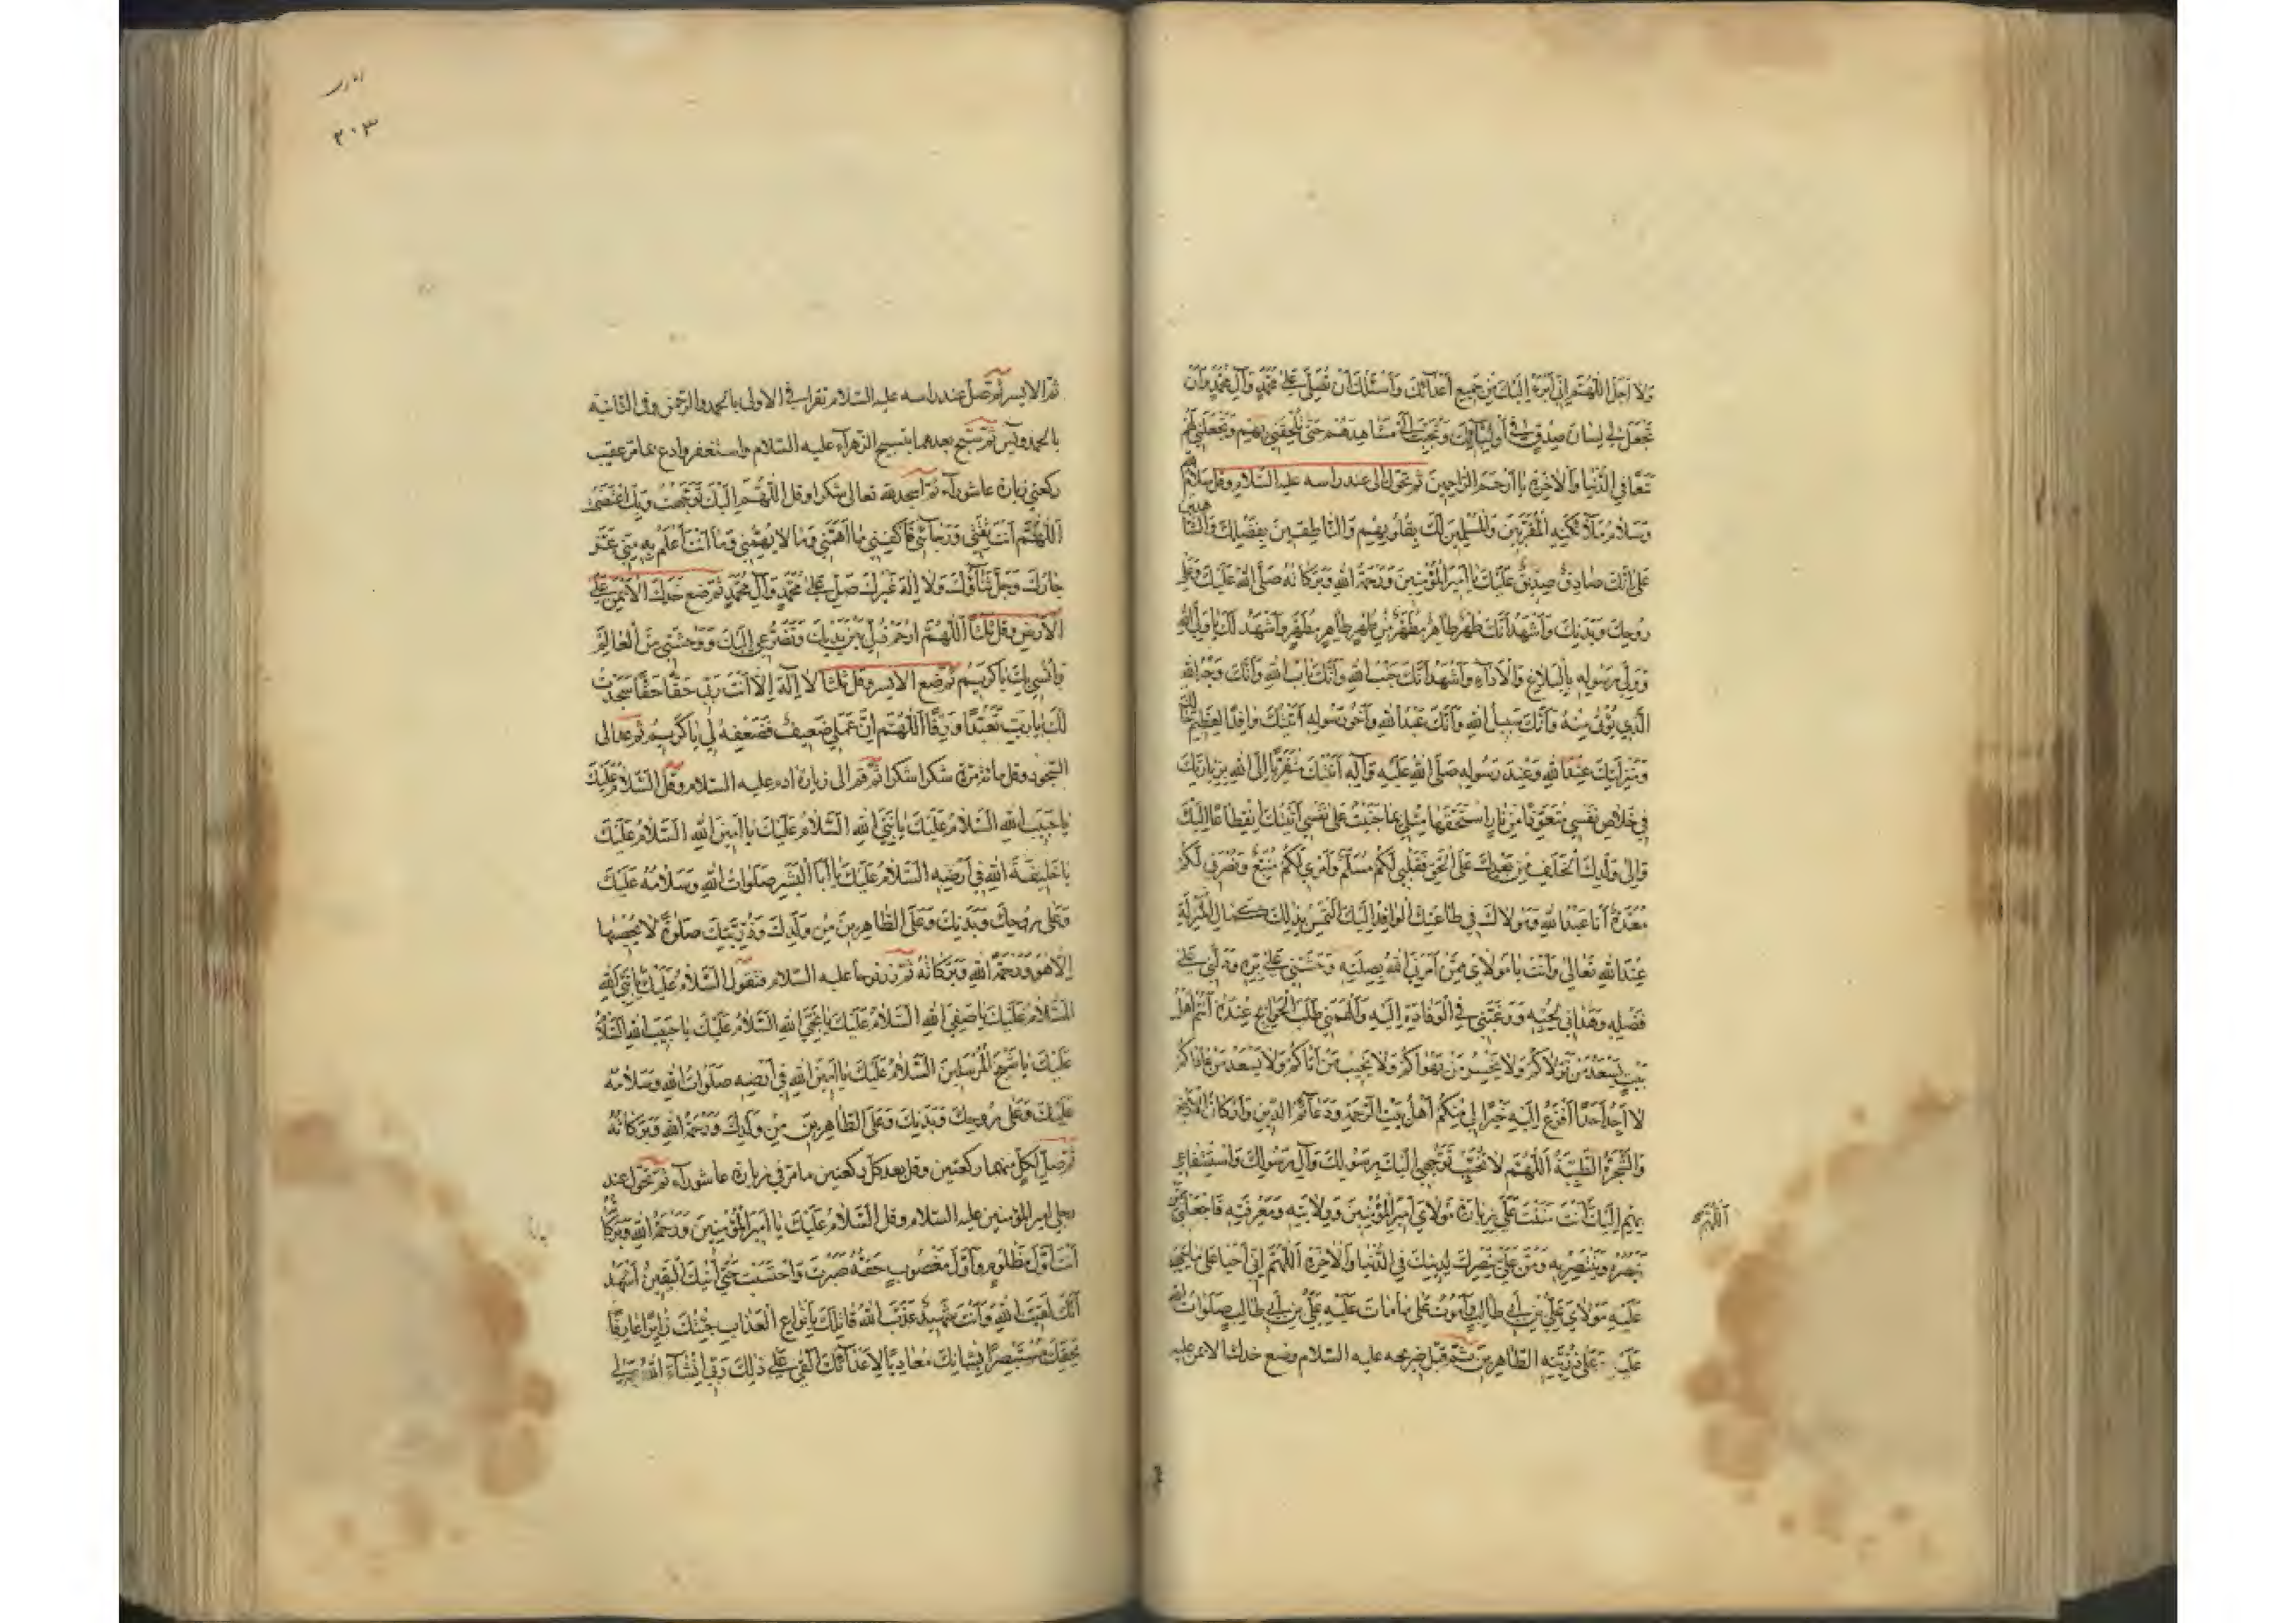 وَلا اَجَلَ اللّهُمَّ اِنّي اَبْرَءُ اِلَيْكَ مِنْ جَميعِ اَعْدائِكَ وَاَسْئَلُكَ اَنْ تُصَلِّيَ عَلى مُحَمَّدٍ وَآلِ مُحَمَّدٍ وَاَنْ
تَجْعَلَ لي لِسانَ صِدْقٍ في اَوْلِيائِكَ وَتُحَبِّبَ اِلَيَّ مَشاهِدَهُمْ حَتّى تُلْحِقَني بِهِمْ وَتَجْعَلَني لَهُمْ
تَبَعًا فِي الدُّنْيا وَالآخِرَةِ يا اَرْحَمَ الرّاحِمينَ ثم تحوّل الى عند راسه عليه السلام وقل سَلامُ اللهِ
وَسَلامُ مَلآئِكَتِهِ الْمُقَرَّبينَ وَالْمُسَلِّمينَ لَكَ بِقُلُوبِهِمْ وَالنّاطِقينَ بِفَضْلِكَ وَالشّاهِدينَ
عَلى اَنَّكَ صادِقٌ صِدّيقٌ عَلَيْكَ يا اَميرَ الْمُؤْمِنينَ وَرَحْمَةُ اللهِ وَبَرَكاتُهُ صَلَّى اللهُ عَلَيْكَ وَعَلى
رُوحِكَ وَبَدَنِكَ وَاَشْهَدُ اَنَّكَ طُهْرٌ طاهِرٌ مُطَهَّرٌ مِنْ طُهْرٍ طاهِرٍ مُطَهَّرٍ وَاَشْهَدُ لَكَ يا وَلِيَّ اللهِ
وَوَلِيَّ رَسُولِهِ بِالْبَلاغِ وَالاَدآءِ وَاَشْهَدُ اَنَّكَ جَنْبُ اللهِ وَاَنَّكَ بابُ اللهِ وَاَنَّكَ وَجْهُ اللهِ
الَّذي يُؤْتى مِنْهُ وَاَنَّكَ سَبيلُ اللهِ وَاَنَّكَ عَبْدُ اللهِ وَاَخُو رَسُولِهِ اَتَيْتُكَ وافِدًا لِعَظيمِ حالِكَ
وَمَنْزِلَتِكَ عِنْدَ اللهِ وَعِنْدَ رَسُولِهِ صَلَّى اللهُ عَلَيْهِ وَآلِهِ اَتَيْتُكَ مُتَقَرِّبًا اِلَى اللهِ بِزِيارَتِكَ
في خَلاصِ نَفْسي مُتَعَوِّذًا مِنْ نارٍ اسْتَحَقَّها مِثْلي بِما جَنَيْتُ عَلى نَفْسي اَتَيْتُكَ انْقِطاعًا اِلَيْكَ
وَاِلى وَلَدِكَ الْخَلَفِ مِنْ بَعْدِكَ عَلَى الْحَقِّ فَقَلْبي لَكُمْ مُسَلِّمٌ وَاَمْري لَكُمْ مُتَّبِعٌ وَنُصْرَتي لَكُمْ
مُعَدَّةٌ اَنَا عَبْدُ اللهِ وَمَوْلاكَ في طاعَتِكَ الْوافِدُ اِلَيْكَ اَلْتَمِسُ بِذلِكَ كَمالَ الْمَنْزِلَةِ
عِنْدَ اللهِ تَعالى وَاَنْتَ يا مَوْلايَ مَنْ اَمَرَنِيَ اللهُ بِصِلَتِهِ وَحَثَّني عَلى بِرِّهِ وَدَلَّني عَلى
فَضْلِهِ وَهَداني لِحُبِّهِ وَرَغَّبَني فِي الْوَفادَةِ اِلَيْهِ وَاَلْهَمَني طَلَبَ الْحَوآئِجِ عِنْدَهُ اَنْتُمْ اَهْلُ
بَيْتٍ يَسْعَدُ مَنْ تَوَلاّكُمْ وَلا يَخْسِرُ مَنْ يَهْواكُمْ وَلا يَخيبُ مَنْ اَتاكُمْ وَلا يَسْعَدُ مَنْ عاداكُمْ
لا اَجِدُ اَحَدًا اَفْزَعُ اِلَيْهِ خَيْرًا لي مِنْكُمْ اَهْلَ بَيْتِ الرَّحْمَةِ وَدَعآئِمَ الدّينِ وَاَرْكانَ الاَرْضِ
وَالشَّجَرَةَ الطَّيِّبَةَ اَللّهُمَّ لا تُخَيِّبْ تَوَجُّهي اِلَيْكَ بِرَسُولِكَ وَآلِ رَسُولِكَ وَاسْتِشْفاعي
بِهِمْ اِلَيْكَ اَنْتَ مَنَنْتَ عَلَيَّ بِزِيارَةِ مَوْلايَ اَميرِ الْمُؤْمِنينَ وَوِلايَتِهِ وَمَعْرِفَتِهِ فَاجْعَلْني مِمَّنْ
اَللّهُمَّ
يَنْصُرُهُ وَيَنْتَصِرُ بِهِ وَمُنَّ عَلَيَّ بِنَصْرِكَ لِدينِكَ فِي الدُّنْيا وَالآخِرَةِ اَللّهُمَّ اِنّي اَحْيا عَلى ما حَيِيَ
عَلَيْهِ مَوْلايَ عَلِيُّ بْنُ اَبي طالِبٍ وَاَمُوتُ عَلى ما ماتَ عَلَيْهِ عَلِيُّ بْنُ اَبي طالِبٍ صَلَواتُ اللهِ
عَلَيْهِ وَعَلى ذُرِّيَّتِهِ الطّاهِرينَ ثمّ قبّل ضريحه عليه السلام وضع خدك الايمن عليه
٢٠٣
ثمّ الايسر ثم تصلّ عند راسه عليه السلام تقرا في الاولى بالحمد والرحمن وفي الثانيه
بالحمد ويس ثم تسبّح بعدهما بتسبيح الزهرآء عليه السلام واستغفر وادع بما مر عقيب
ركعتي زيارة عاشورآء ثم اسجد لله تعالى شكرا وقل اَللّهُمَّ اِلَيْكَ تَوَجَّهْتُ وَبِكَ اعْتَصَمْتُ
اَللّهُمَّ اَنْتَ ثِقَتي وَرَجآئي فَاكْفِني ما اَهَمَّني وَما لا يُهِمُّني وَما اَنْتَ اَعْلَمُ بِهِ مِنّي عَزَّ
جارُكَ وَجَلَّ ثَنآؤُكَ وَلا اِلهَ غَيْرُكَ صَلِّ عَلى مُحَمَّدٍ وَآلِ مُحَمَّدٍ ثم ضع خدك الايمن على
الارض وقل ثلثا اَللّهُمَّ ارْحَمْ ذُلّي بَيْنَ يَدَيْكَ وَتَضَرُّعي اِلَيْكَ وَوَحْشَتي مِنَ الْعالَمِ
وَاُنْسي بِكَ يا كَريمُ ثم ضع الايسر وقل ثلثا لا اِلهَ اِلاّ اَنْتَ رَبّي حَقًّا حَقًّا سَجَدْتُ
لَكَ يا رَبِّ تَعَبُّدًا وَرِقًّا اَللّهُمَّ اِنَّ عَمَلي ضَعيفٌ فَضَعِّفْهُ لي يا كَريمُ ثم عد الى
السجود وقل مائة مرّة شكرا شكرا ثم قم الى زيارة ادم عليه السلام وقل اَلسَّلامُ عَلَيْكَ
يا حَبيبَ اللهِ اَلسَّلامُ عَلَيْكَ يا نَبِيَّ اللهِ اَلسَّلامُ عَلَيْكَ يا اَمينَ اللهِ اَلسَّلامُ عَلَيْكَ
يا خَليفَةَ اللهِ في اَرْضِهِ اَلسَّلامُ عَلَيْكَ يا اَبَا الْبَشَرِ صَلَواتُ اللهِ وَسَلامُهُ عَلَيْكَ
وَعَلى رُوحِكَ وَبَدَنِكَ وَعَلَى الطّاهِرينَ مِنْ وَلَدِكَ وَذُرِّيَّتِكَ صَلوةً لا يُحْصيها
اِلاّ هُوَ وَرَحْمَةُ اللهِ وَبَرَكاتُهُ ثم زر نوحا عليه السلام فتقول اَلسَّلامُ عَلَيْكَ يا نَبِيَّ اللهِ
اَلسَّلامُ عَلَيْكَ يا صَفِيَّ اللهِ اَلسَّلامُ عَلَيْكَ يا نَجِيَّ اللهِ اَلسَّلامُ عَلَيْكَ يا حَبيبَ اللهِ اَلسَّلامُ
عَلَيْكَ يا شَيْخَ الْمُرْسَلينَ اَلسَّلامُ عَلَيْكَ يا اَمينَ اللهِ في اَرْضِهِ صَلَواتُ اللهِ وَسَلامُهُ
عَلَيْكَ وَعَلى رُوحِكَ وَبَدَنِكَ وَعَلَى الطّاهِرينَ مِنْ وَلَدِكَ وَرَحْمَةُ اللهِ وَبَرَكاتُهُ
ثم صلّ لكل منهما ركعتين وقل بعد كل ركعتين ما مر في زيارة عاشورآء ثم تحوّل عند
رجلي امير المؤمنين عليه السلام وقل اَلسَّلامُ عَلَيْكَ يا اَميرَ الْمُؤْمِنينَ وَرَحْمَةُ اللهِ وَبَرَكاتُهُ
اَنْتَ اَوَّلُ مَظْلُومٍ وَاَوَّلُ مَغْصُوبٍ حَقُّهُ صَبَرْتَ وَاحْتَسَبْتَ حَتّى اَتيكَ الْيَقينُ اَشْهَدُ
اَنَّكَ لَقيتَ اللهَ وَاَنْتَ شَهيدٌ عَذَّبَ اللهُ قاتِلَكَ بِاَنْواعِ الْعَذابِ جِئْتُكَ زائِرًا عارِفًا
بِحَقِّكَ مُسْتَبْصِرًا بِشَانِكَ مُعادِيًا لاَعْدآئِكَ اَلْقى عَلى ذلِكَ رَبّي اِنْشآءَ اللهُ